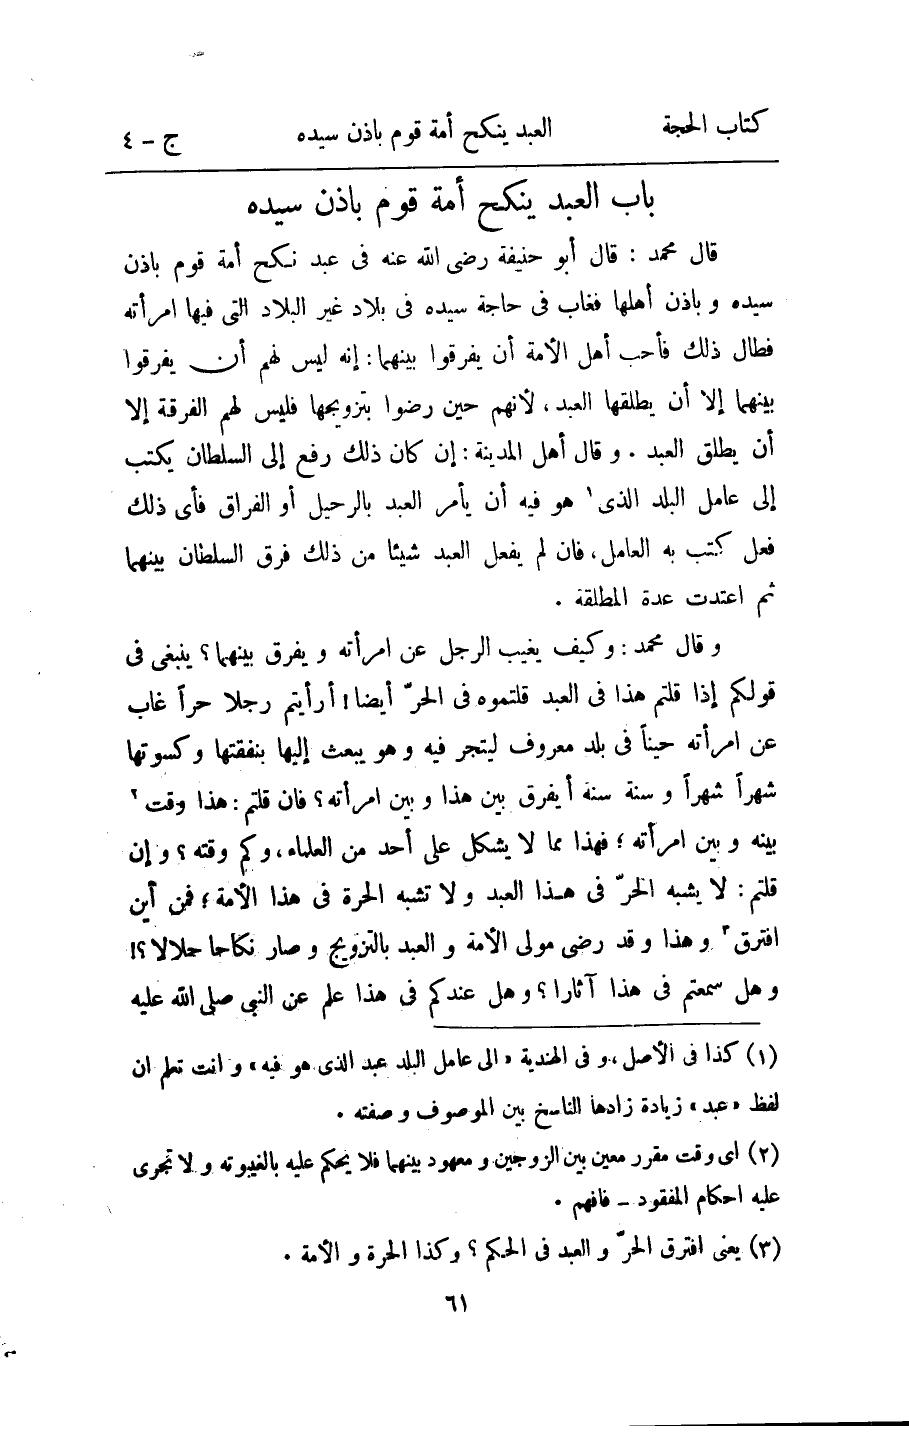 كتاب الحجة العبد ينكح أمة قوم باذن سيده ج – ٤
باب العبد ينكح أمة قوم باذن سيده
قال محمد : قال أبو حنيفة رضى الله عنه فى عبد نكح أمة قوم باذن
سيده و باذن أهلها فغاب فى حاجة سيده فى بلاد غير البلاد التى فيها امرأته
فطال ذلك فأحب أهل الأمة أن يفرقوا بينهما : إنه ليس لهم أن يفرقوا
بينهما إلا أن يطلقها العبد ، لأنهم حين رضوا بتزويجها فليس لهم الفرقة إلا
أن يطلق العبد . و قال أهل المدينة : إن كان ذلك رفع إلى السلطان يكتب
إلى عامل البلد الذى ١ هو فيه أن يأمر العبد بالرحيل أو الفراق فأى ذلك
فعل كتب به العامل ، فان لم يفعل العبد شيئا من ذلك فرق السلطان بينهما
ثم اعتدت عدة المطلقة .
و قال محمد : و كيف يغيب الرجل عن امرأته و يفرق بينهما ؟ ينبغى فى
قولكم إذا قلتم هذا فى العبد قلتموه فى الحرّ أيضا ! أ رأيتم رجلا حراً غاب
عن امرأته حيناً فى بلد معروف ليتجر فيه و هو يبعث إليها بنفقتها و كسوتها
شهراً شهراً و سنة سنة أ يفرق بين هذا و بين امرأته ؟ فان قلتم : هذا وقت ٢
بينه و بين امرأته ؛ فهذا مما لا يشكل على أحد من العلماء ، و كم وقته ؟ و إن
قلتم : لا يشبه الحرّ فى هذا العبد و لا تشبه الحرة فى هذا الأمة ؛ فمن أين
افترق ٣ و هذا و قد رضى مولى الأمة و العبد بالتزويج و صار نكاحا حلالا ؟!
و هل سمعتم فى هذا آثارا ؟ و هل عندكم فى هذا علم عن النبى صلى الله عليه
(١) كذا فى الأصل ، و فى الهندية « الى عامل البلد عبد الذى هو فيه » و انت تعلم ان
لفظ « عبد » زيادة زادها الناسخ بين الموصوف و صفته .
(٢) اى وقت مقرر معين بين الزوجين و معهود بينهما فلا يحكم عليه بالغيبوته و لا تجرى
عليه احكام المفقود – فافهم .
(٣) يعنى افترق الحرّ و العبد فى الحكم ؟ وكذا الحرة و الأمة .
٦١